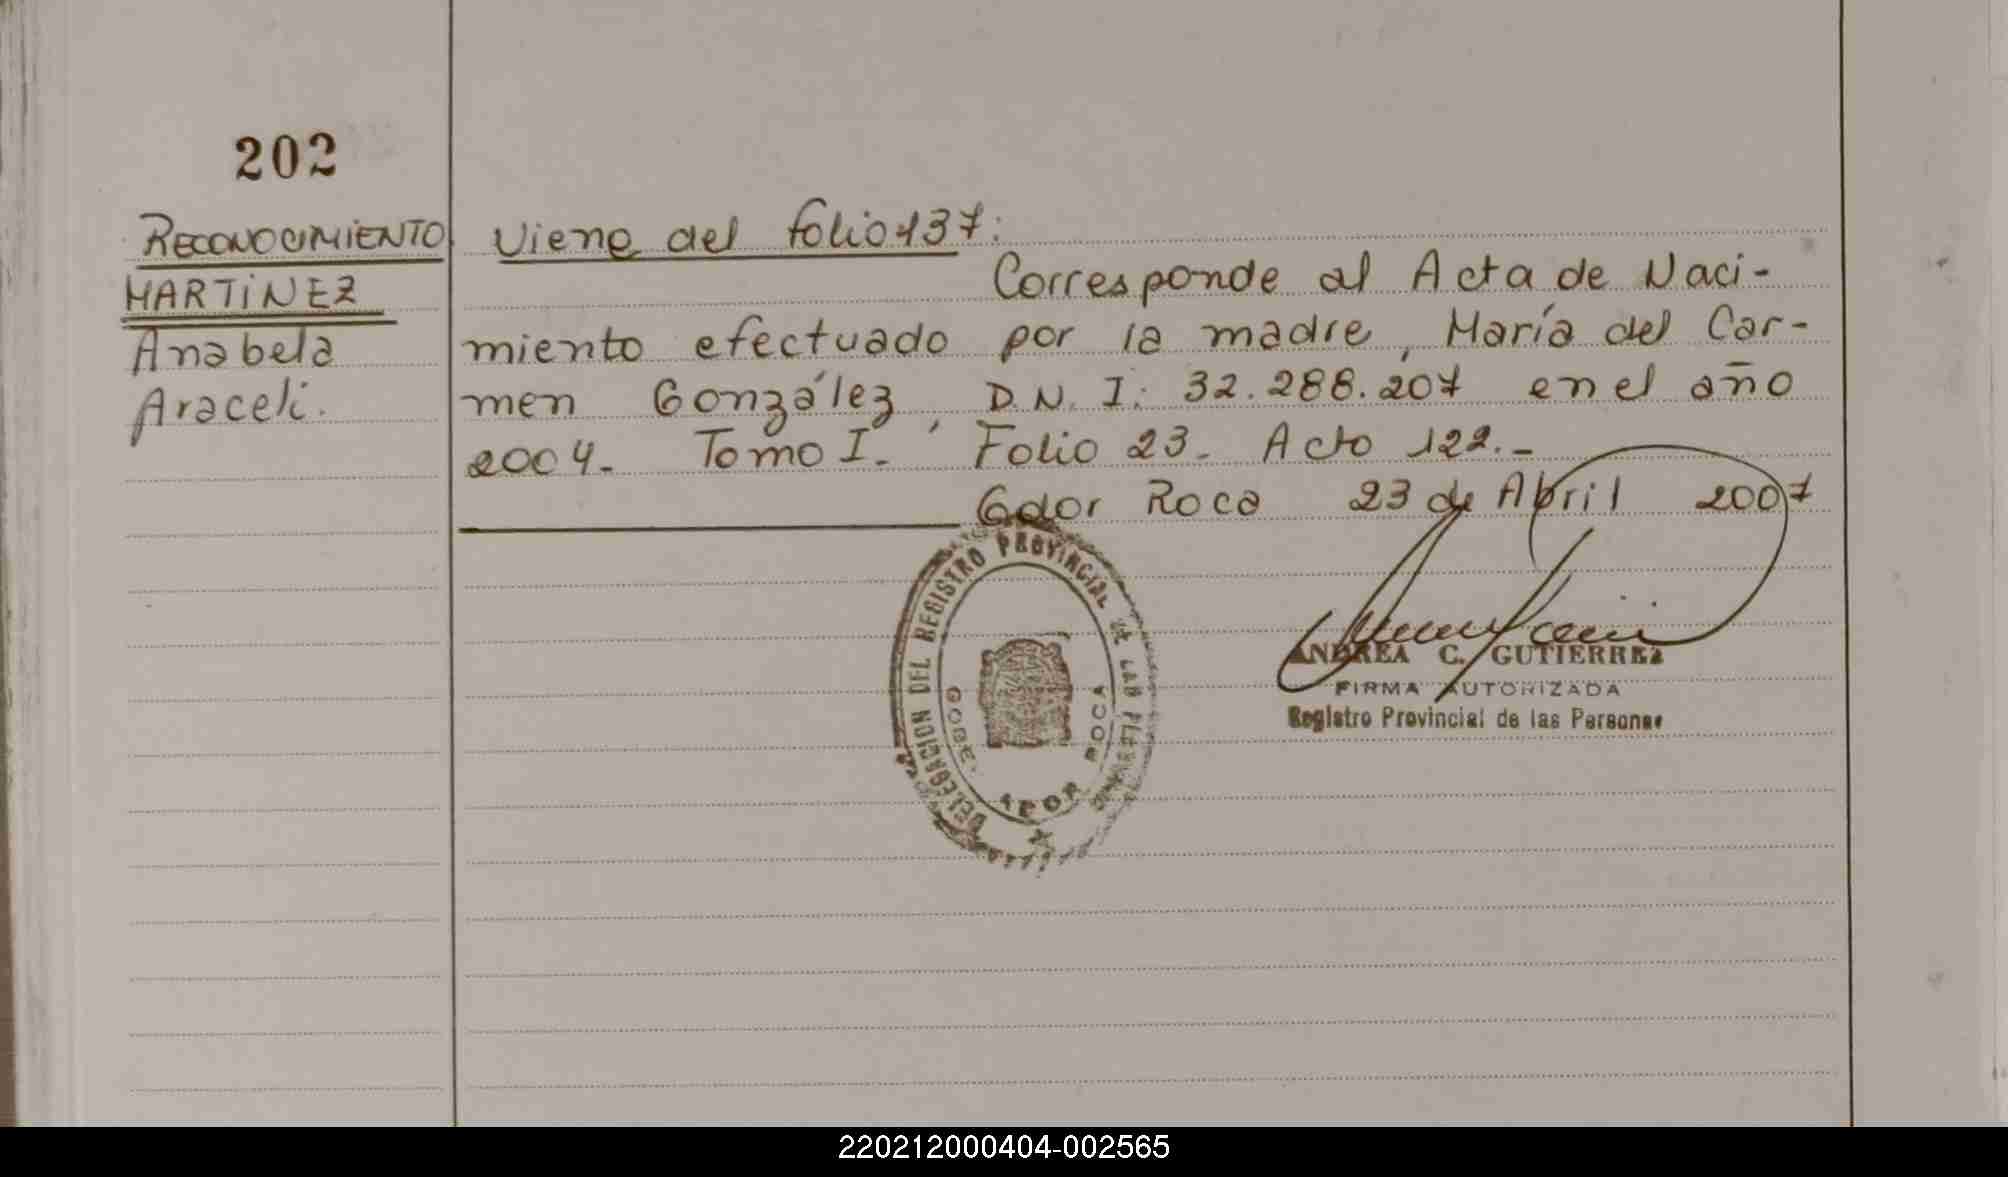 202
RECONOCIMIENTO
MARTÍNEZ
Anabela
Araceli.
Viene del folio 137:
Corresponde al Acta de Naci-
miento efectuado por la madre, María del Car-
men González, D.N.I: 32.288.207 en el año
2004. Tomo I. Folio 23. Acto 122.-
Gdor Roca 23 de Abril 2007
DELEGACION DEL REGISTRO PROVINCIAL
ROCA
ANDREA C. GUTIERREZ
FIRMA AUTORIZADA
Registro Provincial de las Personas
220212000404-002565